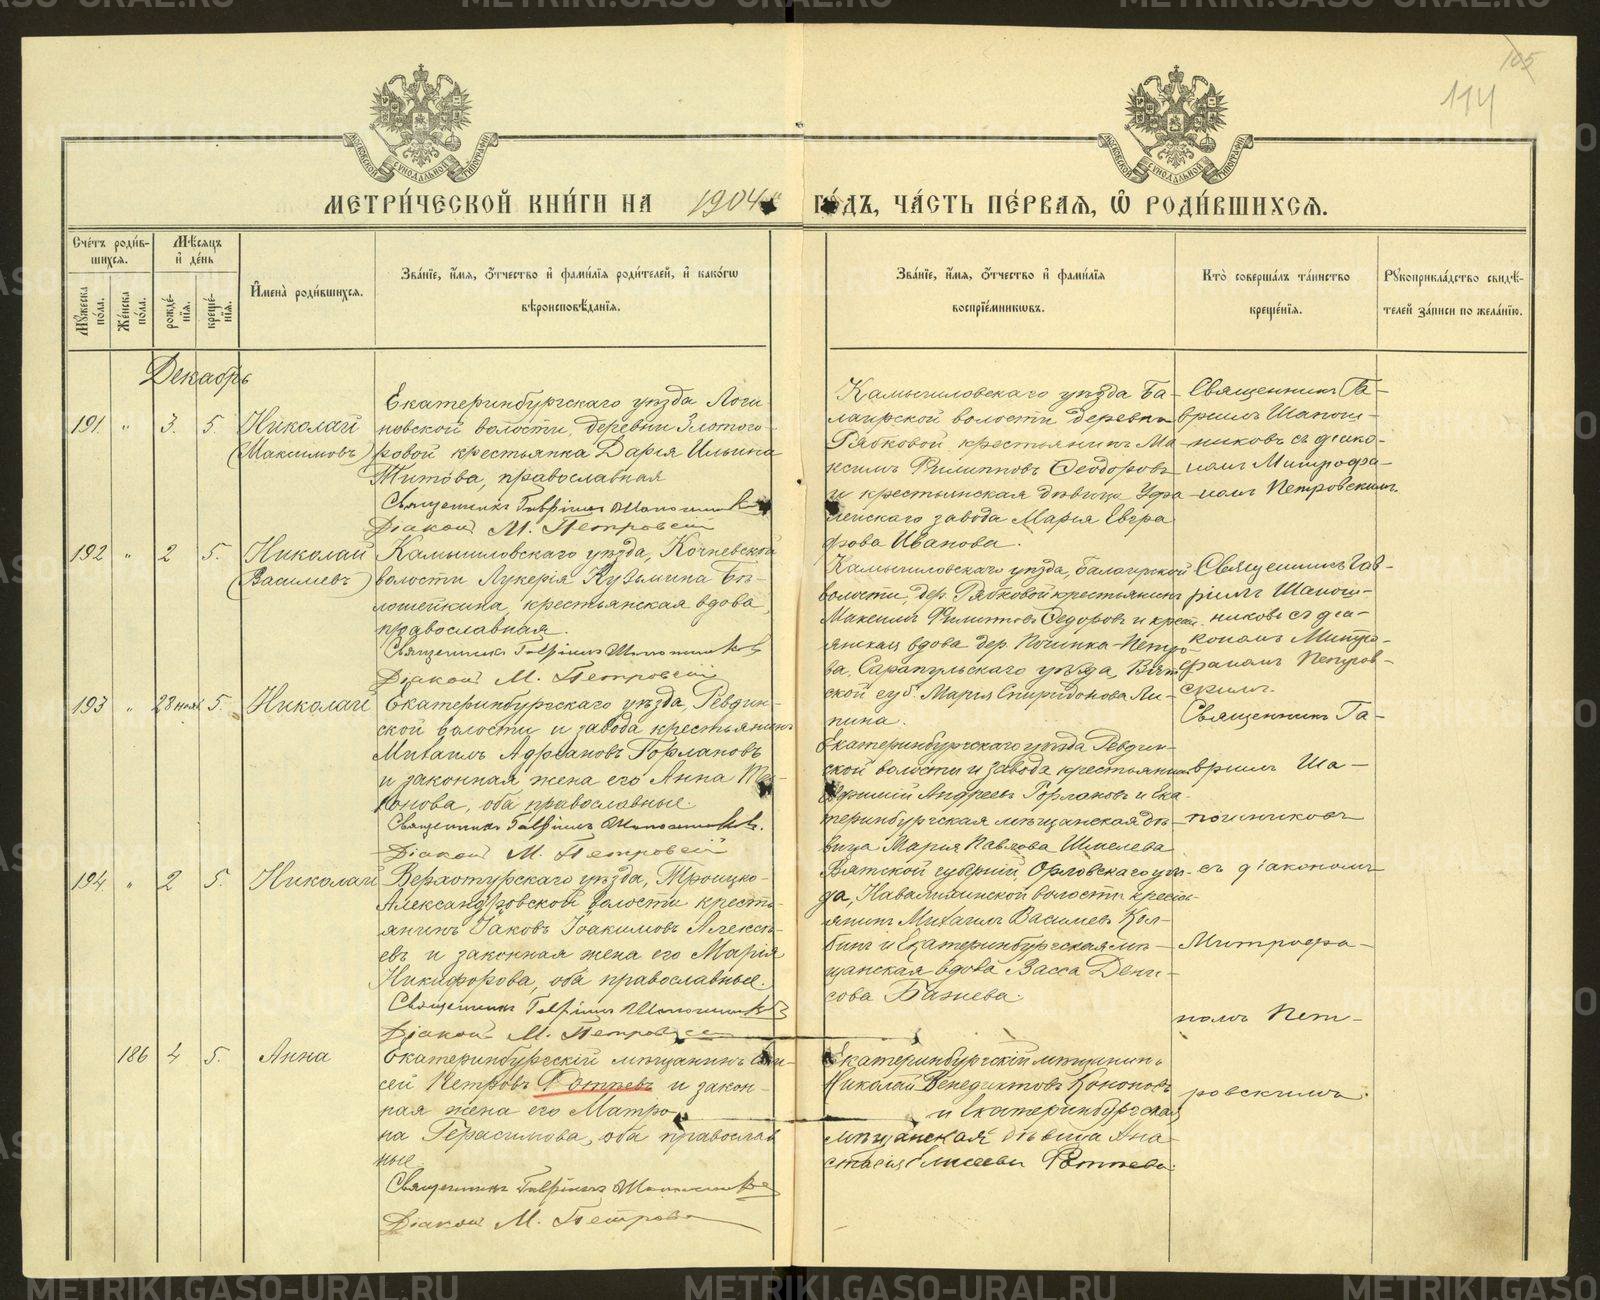 105
114
МЕТРИ́ЧЕСКОЙ КНИ́ГИ НА 1904 ГО́ДЪ, ЧА́СТЬ ПЕ́РВАЯ, Ѡ РОДИ́ВШИХСЯ.
Сче́тъ роди́в-
шихся.
Мꙋ́жеска по́ла.
Же́нска по́ла.
Мѣ́сяцъ
и҆ де́нь
рожде́-
нїя.
креще́-
нїя.
И҆мена̀ роди́вшихся.
Зва́нїе, и҆́мя, ѻ҆́тчество и҆ фами́лїя роди́телей, и҆ како́гѡ
вѣроисповѣ́данїя.
Зва́нїе, и҆́мя, ѻ҆́тчество и҆ фами́лїя
воспрїе́мникѡвъ.
Кто̀ соверша́лъ та́инство
креще́нїя.
Рꙋкоприкла́дство свидѣ́-
телей за́писи по жела́нїю.
Декабрь
191 " 3. 5. Николай
(Максимовъ)
Екатеринбургскаго уѣзда Логи-
новской волости, деревни Златого-
ровой крестьянка Дарія Ильина
Титова, православная
Священникъ Гавріилъ Шапошниковъ
Діаконъ М. Петровскій
Камышловскаго уѣзда Ба-
лаирской волости деревни
Рябковой крестьянинъ Ма-
ксимъ Филипповъ Ѳеодоровъ
и крестьянская дѣвица Уфа-
лейскаго завода Марія Евгра
фова Иванова.
Священникъ Га-
вріилъ Шапош-
никовъ съ діако-
номъ Митрофа-
номъ Петровскимъ.
192 " 2 5. Николай
(Василіевъ)
Камышловскаго уѣзда, Кочневской
волости Лукерія Кузьмина Бог-
лошейкина, крестьянская вдова,
православная.
Священникъ Гавріилъ Шапошниковъ
Діаконъ М. Петровскій
Камышловскаго уѣзда, балаирской
волости, дер. Рябковой крестьянинъ
Максимъ Филипповъ Ѳедоровъ и крест
янская вдова дер. Починка-Петро-
ва, Сарапульскаго уѣзда, Вят-
ской губ. Марія Спиридонова Ли-
пина.
Священникъ Гав-
ріилъ Шапош-
никовъ съ діа-
кономъ Митро-
фаномъ Петров-
скимъ.
193 " 28 нояб 5. Николай
Екатеринбургскаго уѣзда, Ревдин-
ской волости и завода крестьянинъ
Михаилъ Адріановъ Горлановъ
и законная жена его Анна
нова, оба православные.
Священникъ Гавріилъ Шапошниковъ.
Діаконъ М. Петровскій
Екатеринбургскаго уѣзда Ревдин-
ской волости и завода крестьянинъ
Андреевъ Горлановъ и Ека-
теринбургская мѣщанская дѣ-
вица Марія Павлова Шмелева
Священникъ Га-
вріилъ Ша-
пошниковъ
съ діакономъ
Митрофа-
номъ Пет-
ровскимъ.
194 " 2 5. Николай
Верхотурскаго уѣзда, Троицко-
Александровской волости кресть-
янинъ Іаковъ Іоакимовъ Алексѣ-
евъ и законная жена его Марія
Никифорова, оба православные.
Священникъ Гавріилъ Шапошниковъ
Діаконъ М. Петровскій
Вятской губерніи, Орловскаго уѣз-
да, волости кресть-
янинъ Михаилъ Василіевъ Кол-
бинъ и Екатеринбургская мѣ-
щанская вдова Васса Дени-
сова Бажева.
186 4 5. Анна
Екатеринбургскій мѣщанинъ Ели-
сей Петровъ Фотѣевъ и закон-
ная жена его Матро
на Герасимова, оба православ
ные.
Священникъ Гавріилъ Шапошниковъ
Діаконъ М. Петровс
Екатеринбургскій мѣщанинъ
Николай Венедиктовъ Кононовъ
и Екатеринбургская
мѣщанская дѣвица Ана
стасія Елисеева Фотѣева.